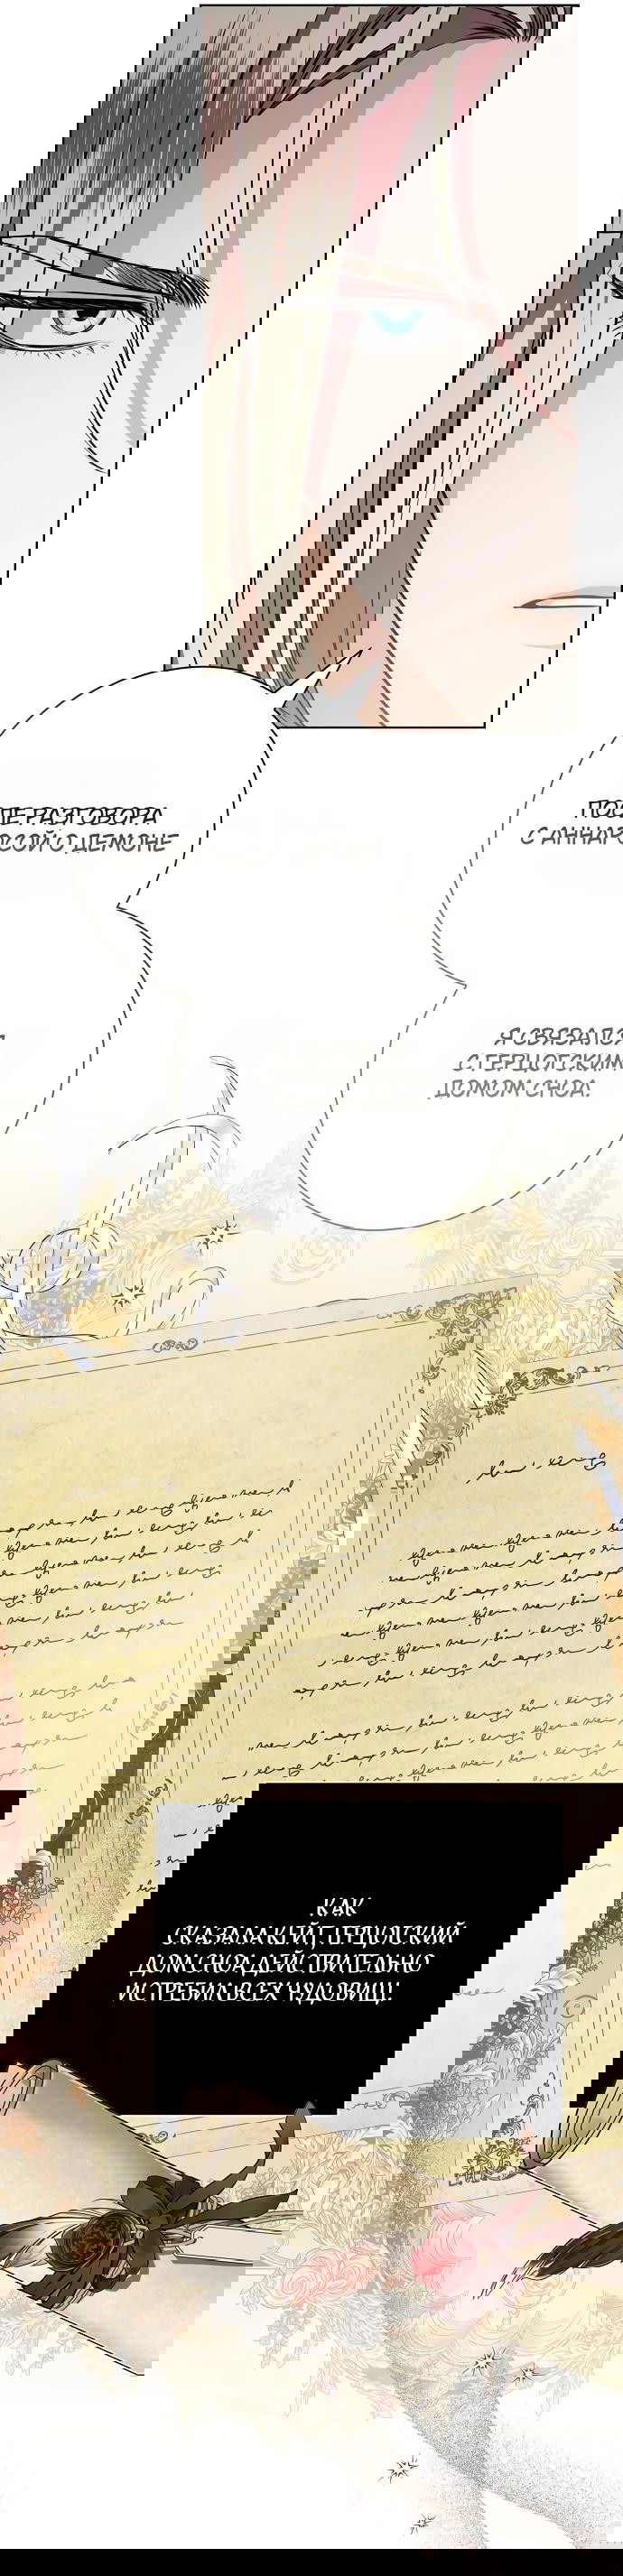 ПОСЛЕ РАЗГОВОРА
С АННАРОСОЙ О ДЕМОНЕ
Я СВЯЗАЛСЯ
С ГЕРЦОГСКИМ
ДОМОМ СНОА.
КАК
СКАЗАЛА КЕЙТ, ГЕРЦОГСКИЙ
ДОМ СНОА ДЕЙСТВИТЕЛЬНО
ИСТРЕБИЛ ВСЕХ ЧУДОВИЩ.